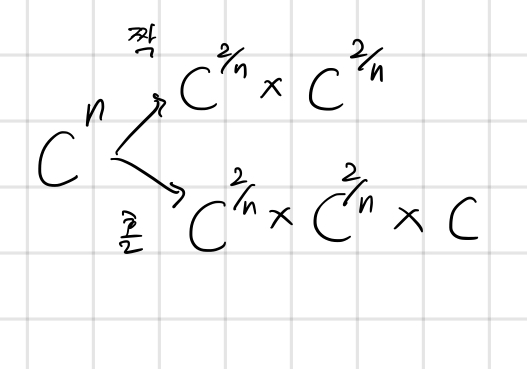 짝
C^n
C^2/n × C^2/n
홀
C^2/n × C^2/n × C